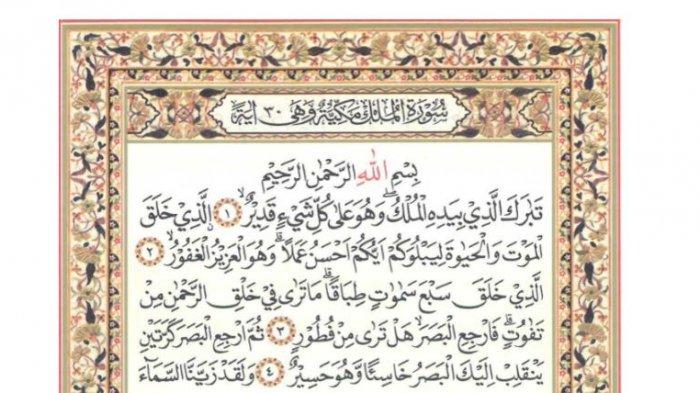 سُورَةُ الْمُلْكِ مَكِّيَّةٌ وَهِيَ ٣٠ اٰيَةً
بِسْمِ اللّٰهِ الرَّحْمٰنِ الرَّحٖيمِ
تَبَارَكَ الَّذٖي بِيَدِهِ الْمُلْكُۘ وَهُوَ عَلٰى كُلِّ شَيْءٍ قَدٖيرٌۙ ١ اَلَّذٖي خَلَقَ
الْمَوْتَ وَالْحَيٰوةَ لِيَبْلُوَكُمْ اَيُّكُمْ اَحْسَنُ عَمَلًاؕ وَهُوَ الْعَزٖيزُ الْغَفُورُۙ ٢
اَلَّذٖي خَلَقَ سَبْعَ سَمٰوَاتٍ طِبَاقًاؕ مَا تَرٰى فٖي خَلْقِ الرَّحْمٰنِ مِنْ
تَفَاوُتٍؕ فَارْجِعِ الْبَصَرَۙ هَلْ تَرٰى مِنْ فُطُورٍ ٣ ثُمَّ ارْجِعِ الْبَصَرَ كَرَّتَيْنِ
يَنْقَلِبْ اِلَيْكَ الْبَصَرُ خَاسِئًا وَهُوَ حَسٖيرٌ ٤ وَلَقَدْ زَيَّنَّا السَّمَٓاءَ